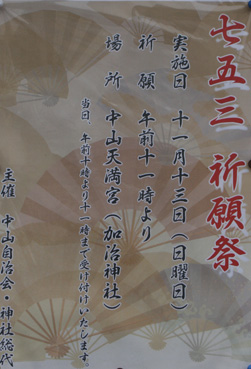 七五三 祈願祭
実施日 十一月十三日(日曜日)
祈願 午前十一時より
場所 中山天満宮(加治神社)
当日 午前十時より十一時まで受け付けいたします。
主催 中山自治会・神社総代